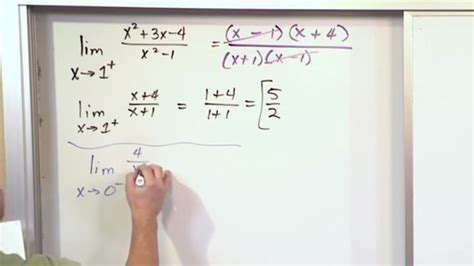 lim x→1⁺ x²+3x-4 / x²-1 = (x-1)(x+4) / (x+1)(x-1)
lim x→1⁺ x+4 / x+1 = 1+4 / 1+1 = [5/2
lim x→0⁻ 4/